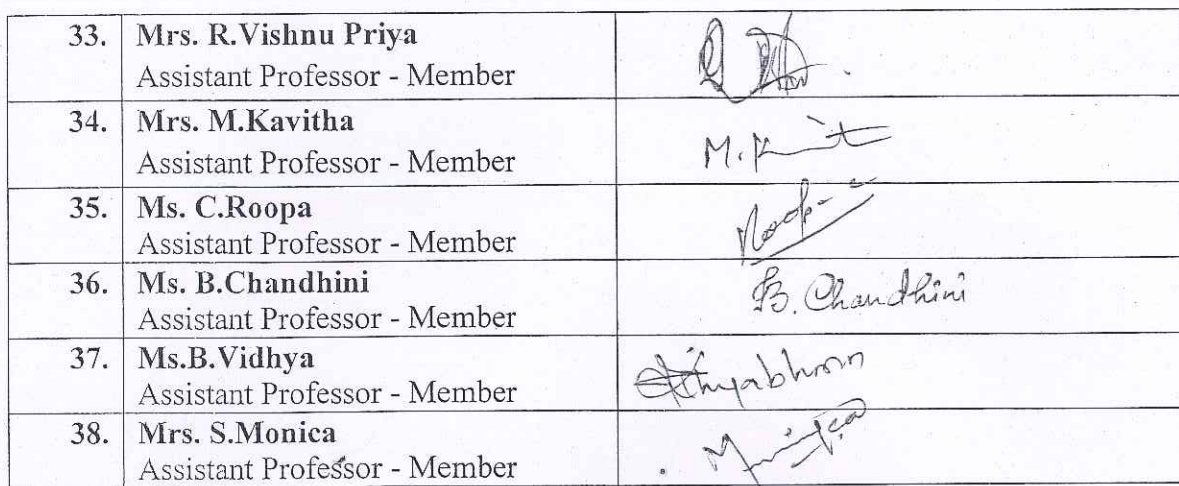 33. Mrs. R.Vishnu Priya
Assistant Professor - Member
34. Mrs. M.Kavitha
Assistant Professor - Member
M.
35. Ms. C.Roopa
Assistant Professor - Member
Roopa
36. Ms. B.Chandhini
Assistant Professor - Member
B. Chandhini
37. Ms.B.Vidhya
Assistant Professor - Member
38. Mrs. S.Monica
Assistant Professor - Member